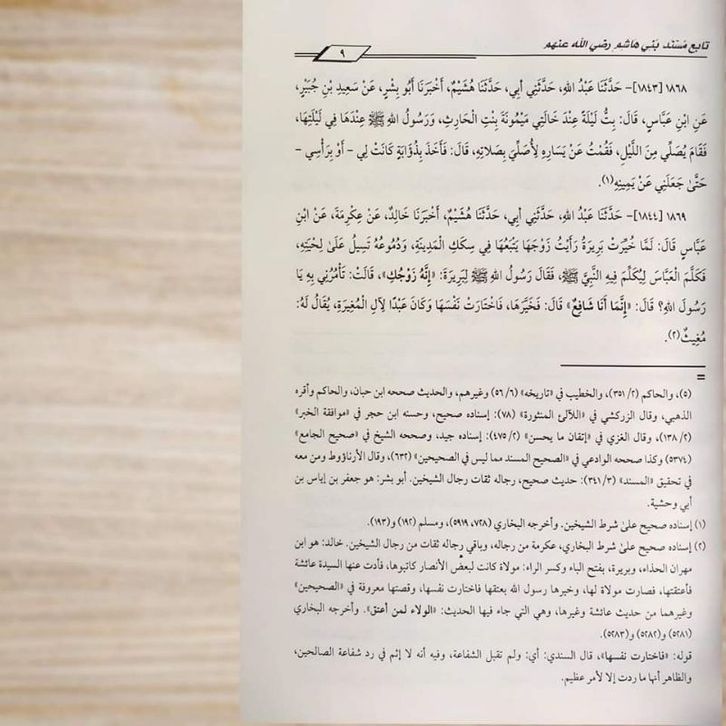 تابع مسند بني هاشم رضي الله عنهم
٩
١٨٦٨ [١٨٤٣]- حَدَّثَنَا عَبْدُ اللهِ، حَدَّثَنِي أَبِي، حَدَّثَنَا هُشَيْمٌ، أَخْبَرَنَا أَبُو بِشْرٍ، عَنْ سَعِيدِ بْنِ جُبَيْرٍ،
عَنِ ابْنِ عَبَّاسٍ، قَالَ: بِتُّ لَيْلَةً عِنْدَ خَالَتِي مَيْمُونَةَ بِنْتِ الْحَارِثِ، وَرَسُولُ اللهِ ﷺ عِنْدَهَا فِي لَيْلَتِهَا،
فَقَامَ يُصَلِّي مِنَ اللَّيْلِ، فَقُمْتُ عَنْ يَسَارِهِ لِأُصَلِّيَ بِصَلَاتِهِ، قَالَ: فَأَخَذَ بِذُؤَابَةٍ كَانَتْ لِي - أَوْ بِرَأْسِي -
حَتَّىٰ جَعَلَنِي عَنْ يَمِينِهِ(١).
١٨٦٩ [١٨٤٤]- حَدَّثَنَا عَبْدُ اللهِ، حَدَّثَنِي أَبِي، حَدَّثَنَا هُشَيْمٌ، أَخْبَرَنَا خَالِدٌ، عَنْ عِكْرِمَةَ، عَنْ ابْنِ
عَبَّاسٍ قَالَ: لَمَّا خُيِّرَتْ بَرِيرَةُ رَأَيْتُ زَوْجَهَا يَتْبَعُهَا فِي سِكَكِ الْمَدِينَةِ، وَدُمُوعُهُ تَسِيلُ عَلَىٰ لِحْيَتِهِ،
فَكَلَّمَ الْعَبَّاسَ لِيُكَلِّمَ فِيهِ النَّبِيَّ ﷺ، فَقَالَ رَسُولُ اللهِ ﷺ لِبَرِيرَةَ: «إِنَّهُ زَوْجُكِ»، قَالَتْ: تَأْمُرُنِي بِهِ يَا
رَسُولَ اللهِ؟ قَالَ: «إِنَّمَا أَنَا شَافِعٌ» قَالَ: فَخَيَّرَهَا، فَاخْتَارَتْ نَفْسَهَا وَكَانَ عَبْدًا لِآلِ الْمُغِيرَةِ، يُقَالُ لَهُ:
مُغِيثٌ(٢).
=
(٥)، والحاكم (٢/ ٣٥١)، والخطيب في «تاريخه» (٦/ ٥٦) وغيرهم، والحديث صححه ابن حبان، والحاكم وأقره
الذهبي، وقال الزركشي في «اللآلئ المنثورة» (٧٨): إسناده صحيح، وحسنه ابن حجر في «موافقة الخبر»
(٢/ ١٣٨)، وقال الغزي في «إتقان ما يحسن» (٢/ ٤٧٥): إسناده جيد، وصححه الشيخ في «صحيح الجامع»
(٥٣٧٤) وكذا صححه الوادعي في «الصحيح المسند مما ليس في الصحيحين» (٦٣٢)، وقال الأرناؤوط ومن معه
في تحقيق «المسند» (٣/ ٣٤١): حديث صحيح، رجاله ثقات رجال الشيخين. أبو بشر: هو جعفر بن إياس بن
أبي وحشية.
(١) إسناده صحيح علىٰ شرط الشيخين. وأخرجه البخاري (٧٢٨، ٥٩١٩)، ومسلم (١٩٢) و(١٩٣).
(٢) إسناده صحيح علىٰ شرط البخاري، عكرمة من رجاله، وباقي رجاله ثقات من رجال الشيخين. خالد: هو ابن
مهران الحذاء، وبريرة، بفتح الباء وكسر الراء: مولاة كانت لبعض الأنصار كاتبوها، فأدت عنها السيدة عائشة
فأعتقتها، فصارت مولاة لها، وخيرها رسول الله بعتقها فاختارت نفسها، وقصتها معروفة في «الصحيحين»
وغيرهما من حديث عائشة وغيرها، وهي التي جاء فيها الحديث: «الولاء لمن أعتق». وأخرجه البخاري
(٥٢٨١) و(٥٢٨٢) و(٥٢٨٣).
قوله: «فاختارت نفسها»، قال السندي: أي: ولم تقبل الشفاعة، وفيه أنه لا إثم في رد شفاعة الصالحين،
والظاهر أنها ما ردت إلا لأمر عظيم.